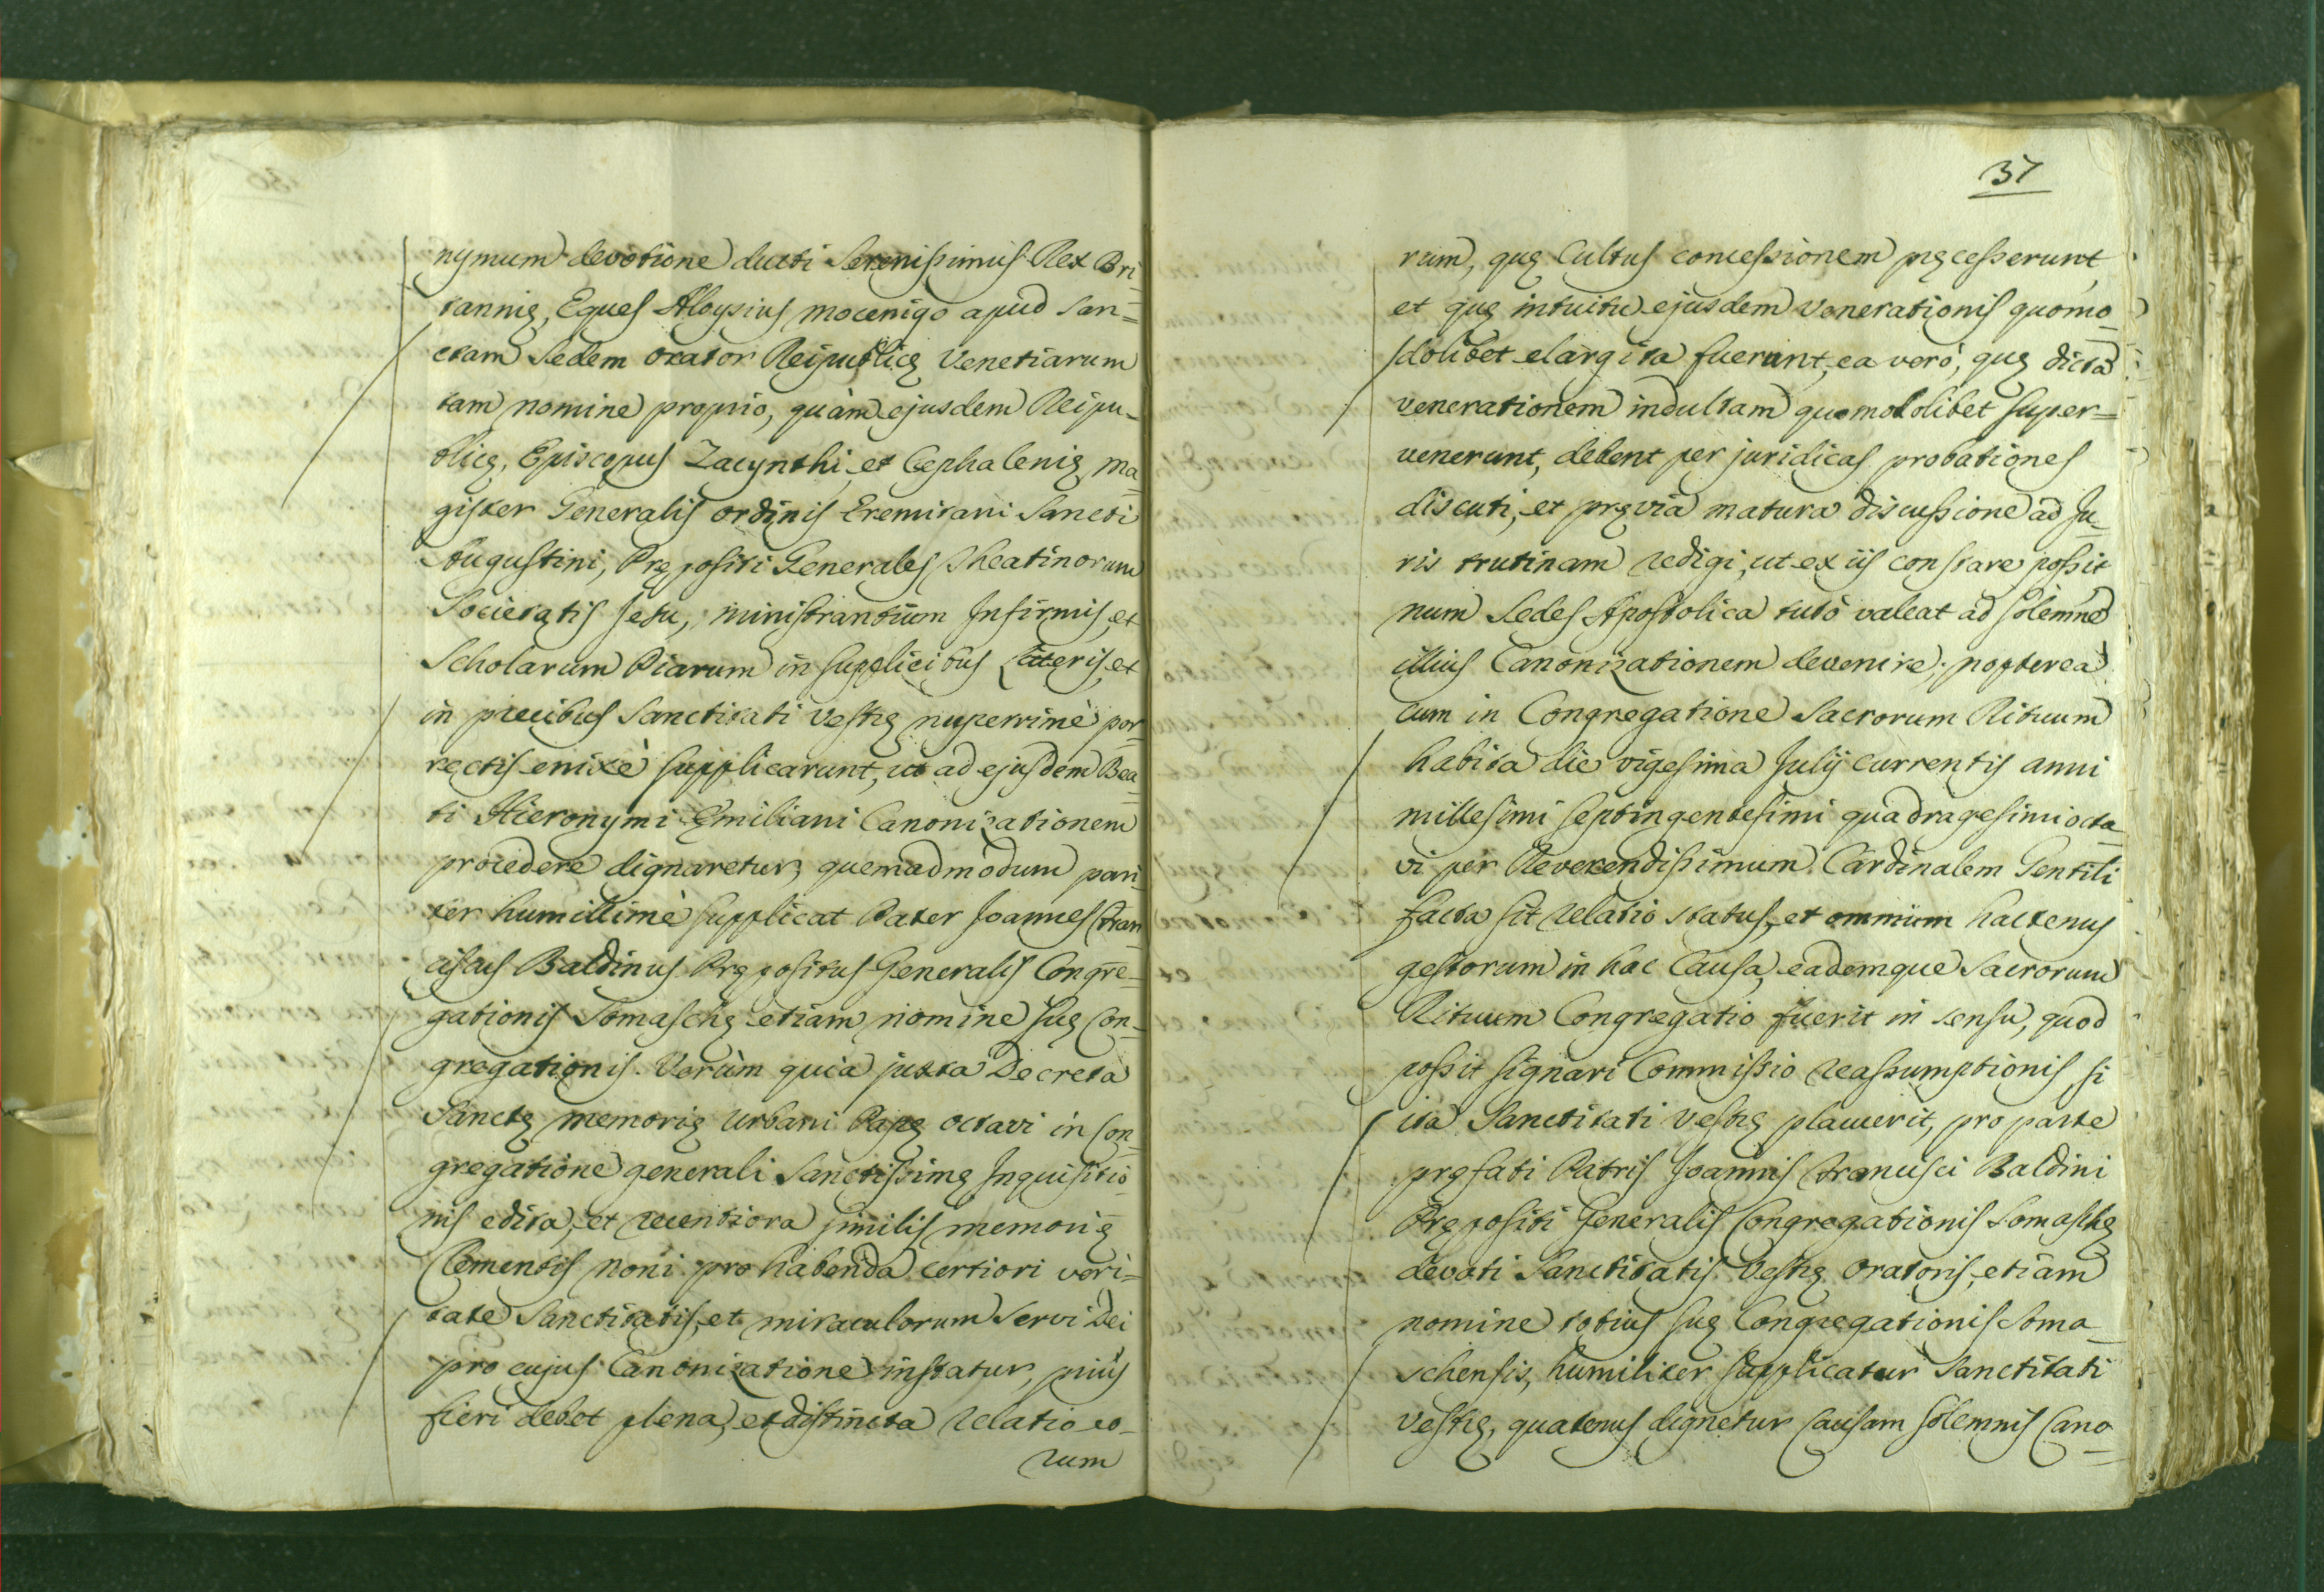 nymum devotione ducti Serenissimus Rex Bri=
tannię, Eques Aloysius Mocenigo apud San=
ctam Sedem Orator Reipublicę Venetiarum
tam nomine proprio, quàm ejusdem Reipu=
blicę, Episcopus Zacynthi, et Cephalenię, Ma=
gister Generalis Ordinis Eremitani Sancti
Augustini, Prępositi Generales Theatinorum
Societatis Jesu, ministrantium Infirmis, et
Scholarum Piarum in supplicibus Litteris, et
in precibus Sanctitati Vestrę nuperrimè por=
rectis enixè supplicarunt, ut ad ejusdem Bea=
ti Hieronymi Ęmiliani Canonizationem
procedere dignaretur, quemadmodum pari=
ter humillimè supplicat Pater Joannes Fran=
ciscus Baldinus Prępositus Generalis Congre=
gationis Somaschę etiam nomine suę Con=
gregationis. Verùm quia juxta Decreta
Sanctę memorię Urbani Papę Octavi in Con=
gregatione generali Sanctissimę Inquisitio=
nis edita, et recentiora similis memorię
Clementis Noni pro habenda certiori veri=
tate Sanctitatis, et miraculorum Servi Dei
pro cujus Canonizatione instatur, priùs
fieri debet plena, et distincta relatio eo=
rum
37
rum, quę Cultus concessionem pręcesserunt,
et quę intuitu ejusdem Venerationis quomo=
dolibet elargita fuerunt, ea verò, quę dictã
venerationem indultam quomodolibet super=
venerunt, debent per juridicas probationes
discuti, et prævia matura discussione ad Ju=
ris trutinam redigi, ut ex iis constare possit
num Sedes Apostolica tutò valeat ad solemnẽ
illius Canonizationem devenire; propterea
cum in Congregatione Sacrorum Rituum
habita die vigesima Julij currentis anni
millesimi septingentesimi quadragesimi octa=
vi per Reverendissimum Cardinalem Gentili
facta sit relatio status, et omnium hactenus
gestorum in hac Causa, eademque Sacrorum
Rituum Congregatio fuerit in sensu, quod
possit signari Commissio reassumptionis, si
ita Sanctitati Vestrę placuerit, pro parte
pręfati Patris Joannis Francisci Baldini
Prępositi Generalis Congregationis Somaschę
devoti Sanctitatis Vestrę Oratoris, etiam
nomine totius suę Congregationis Soma=
schensis, humiliter supplicatur Sanctitati
Vestrę, quatenus dignetur Causam solemnis Cano=